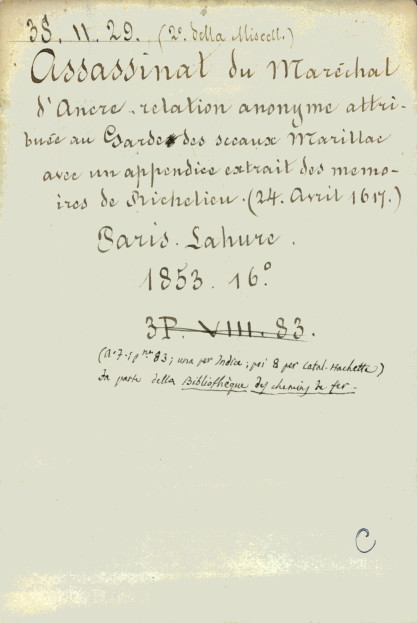 3S. 11. 29. (2.° della Miscell.)
Assassinat du Maréchal
d'Ancre. relation anonyme attri-
buée au Garde des sceaux Marillac
avec un appendice extrait des memo-
ires de Richelieu. (24. Avril 1617.)
Paris. Lahure.
1853. 16°
3P. VIII. 83.
pne 83; una per Indice; poi 8 per Catal. Hachette)
Fa parte della Bibliothèque des chemins de fer.
C